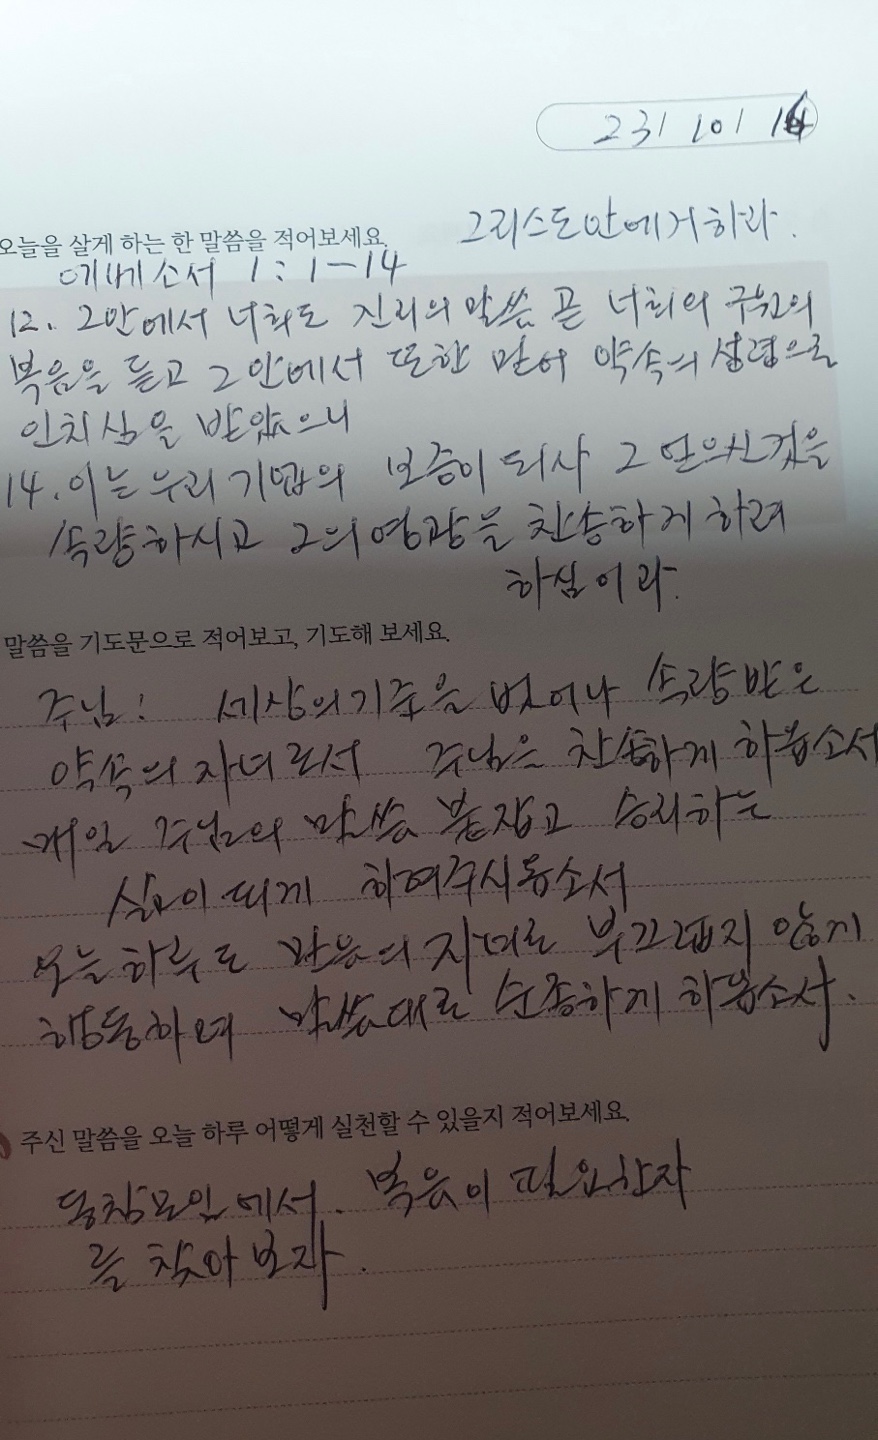 231 101 16
그리스도안에거하라.
오늘을 살게 하는 한 말씀을 적어보세요.
에베소서 1:1-14
12. 그안에서 너희도 진리의 말씀 곧 너희의 구원의
복음을 듣고 그안에서 또한 믿어 약속의 성령으로
인치심을 받았으니
14. 이는 우리 기업의 보증이 되사 그 얻으신것을
속량하시고 그의 영광을 찬송하게 하려
하심이라.
말씀을 기도문으로 적어보고, 기도해 보세요.
주님! 세상의기준을 벗어나 속량받은
약속의 자녀로서 주님은 찬송하게 하옵소서
매일 주님의 말씀 붙잡고 승리하는
삶이 되게 하여주시옵소서
오늘하루도 믿음의 자녀로 부끄럽지 않게
행동하며 말씀대로 순종하게 하옵소서.
주신 말씀을 오늘 하루 어떻게 실천할 수 있을지 적어보세요.
동창모임에서. 복음이 필요한자
를 찾아보자.